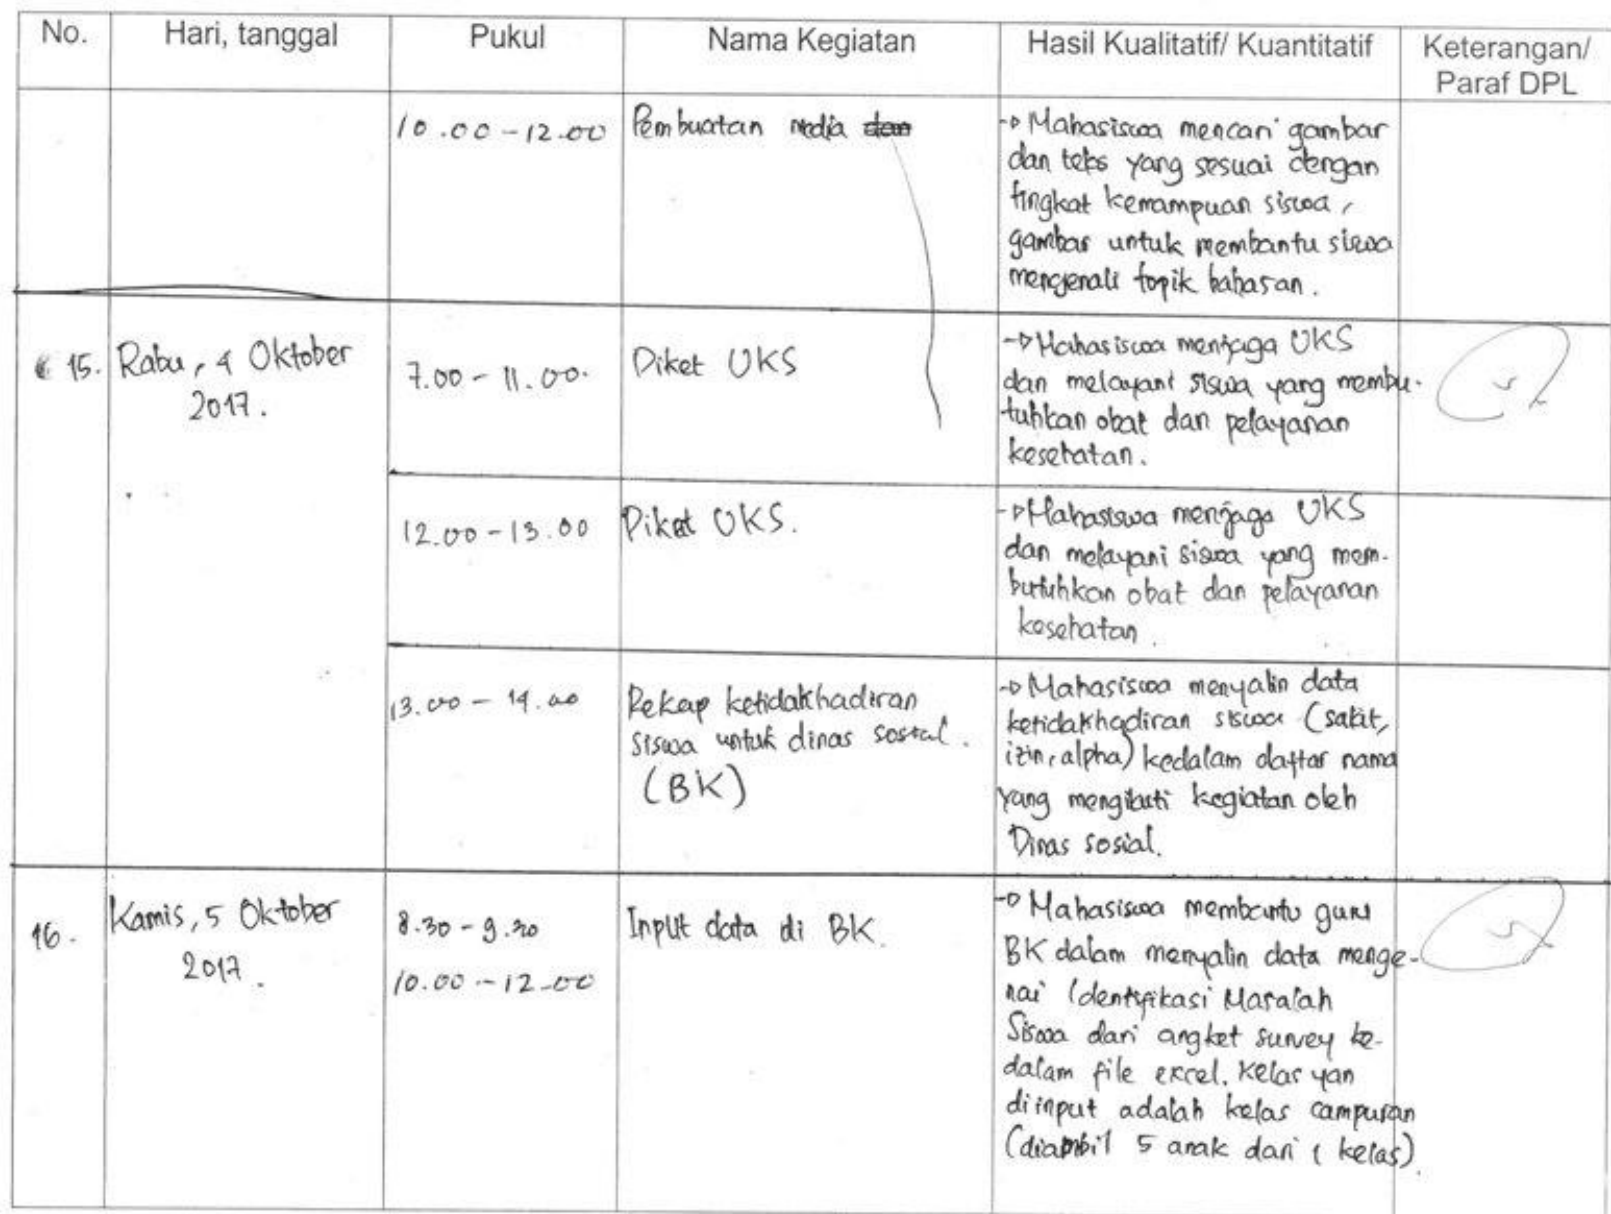 No. Hari, tanggal Pukul Nama Kegiatan Hasil Kualitatif/ Kuantitatif Keterangan/
Paraf DPL
10.00-12.00 Pembuatan media dan
→ Mahasiswa mencari gambar
dan teks yang sesuai dengan
tingkat kemampuan siswa,
gambar untuk membantu siswa
mengenali topik bahasan.
15. Rabu, 4 Oktober
2017.
7.00 - 11.00.
Piket UKS
→ Mahasiswa menjaga UKS
dan melayani siswa yang membu-
tuhkan obat dan pelayanan
kesehatan.
12.00-13.00
Piket UKS.
→ Mahasiswa menjaga UKS
dan melayani siswa yang mem-
butuhkan obat dan pelayanan
kesehatan.
13.00 - 14.00
Rekap ketidakhadiran
siswa untuk dinas sosial.
(BK)
→ Mahasiswa menyalin data
ketidakhadiran siswa (sakit,
izin, alpha) kedalam daftar nama
yang mengikuti kegiatan oleh
Dinas sosial.
16. Kamis, 5 Oktober
2017.
8.30 - 9.30
10.00 - 12.00
Input data di BK.
→ Mahasiswa membantu guru
BK dalam menyalin data menge-
nai Identifikasi Masalah
Siswa dari angket survey ke-
dalam file excel. Kelas yan
diinput adalah kelas campuran
(diambil 5 anak dari 1 kelas).